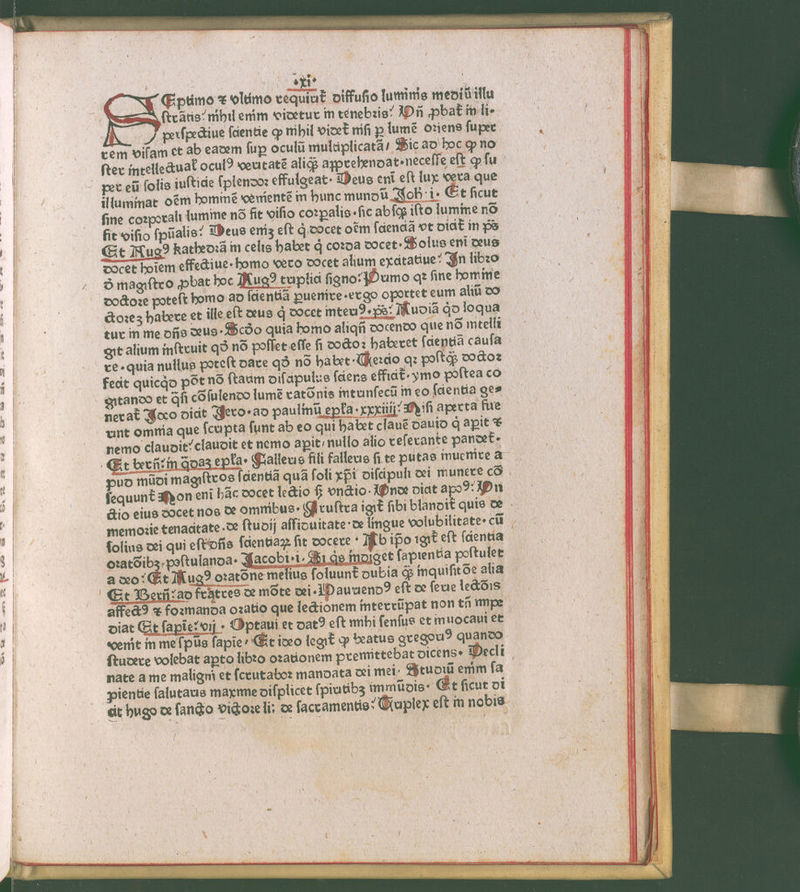 ·xi·
SEptimo ⁊ vltimo requirit᷑ diffusio luminis mediũ illu
strãtis: nihil enim videtur in tenebris: Vñ ꝓbat᷑ in li·
perspectiue scientie ꝙ nihil videt᷑ nisi ꝑ lumẽ oriens super
rem visam et ab eadem suꝑ oculũ multiplicatã/ Sic ad hoc ꝙ no
ster intellectual᷑ oculꝰ veritatẽ aliqꝫ apprehendat·necesse est ꝙ su
per eũ solis iusticie splendor effulgeat· Deus eni est lux vera que
illuminat oẽm hominẽ venientẽ in hunc mundũ Joh̃·i· Et sicut
sine corporali lumine nõ fit visio corꝑalis·sic absqꝫ isto lumine nõ
fit visio spũalis: Deus eniꝫ est q̇ docet oẽm scienciã vt dicit᷑ in p̃s
Et Augꝰ kathedrã in celis habet q̇ corda docet· Solus eni deus
docet hoĩem effectiue·homo vero docet alium excitatiue: In libro
ð magistro ꝓbat hoc Augꝰ triplici signo: Primo qr sine homine
doctore potest homo ad scientiã ꝑuenire·ergo oportet eum aliũ do
ctoreꝫ habere et ille est deus q̇ docet interiꝰ·p̃s: Audiã q̇d loqua
tur in me dñs deus· Scðo quia homo aliqñ docendo que nõ intelli
git alium instruit qð nõ posset esse si doctor haberet scientiã causa
re·quia nullus potest dare qð nõ habet· Tercio qr postqꝫ doctor
fecit quicq̇d põt nõ statim discipulus sciens efficit᷑·ymo postea co
gitando et q̃si cõsulendo lumẽ ratõnis intrinsecũ in eo scientia ge⸗
nerat᷑ Jdeo dicit Jero·ad paulinũ epl̃a·xxxiiij: Nisi aperta fue
rint omnia que scripta sunt ab eo qui habet clauẽ dauid q̇ aꝑit ⁊
nemo claudit: claudit et nemo aꝑit·nullo alio reserante pandet᷑·
Et berñ: in q̃daꝫ epl̃a· Falleris fili falleris si te putas inuenire a
pud mũdi magistros scientiã quã soli xp̃i discipuli dei munere cõ
sequunt᷑ Non eni hãc docet lectio sꝫ vnctio· Vnde dicit apoꝰ: Vn
ctio eius docet nos de omnibus· Frustra igit᷑ sibi blandit᷑ quis de
memorie tenacitate·de studij assiduitate·de lingue volubilitate·cũ
solius dei qui est dñs scientiaꝝ sit docere· Ab ipo igit᷑ est scientia
oratõibꝫ postulanda· Jacobi·i· Si q̇s indiget sapientia postulet
a deo: Et Augꝰ oratõne melius soluunt᷑ dubia qꝫ inquisitõe alia
Et Berñ: ad fratres de mõte dei· Hauriendꝰ est de serie lectõis
affectꝰ ⁊ formanda oratio que lectionem interrũpat non tñ impe
diat Et sapĩe: vij· Optaui et datꝰ est mihi sensus et inuocaui et
venit in me spũs sapie/ Et ideo legit᷑ ꝙ beatus gregoriꝰ quando
studere volebat apto libro orationem premittebat dicens· Decli
nate a me maligni et scrutabor mandata dei mei· Studiũ enim sa
pientie salutaris maxime displicet spiritibꝫ immũdis· Et sicut di
cit hugo de sancto victore li: de sacramentis: Triplex est in nobis